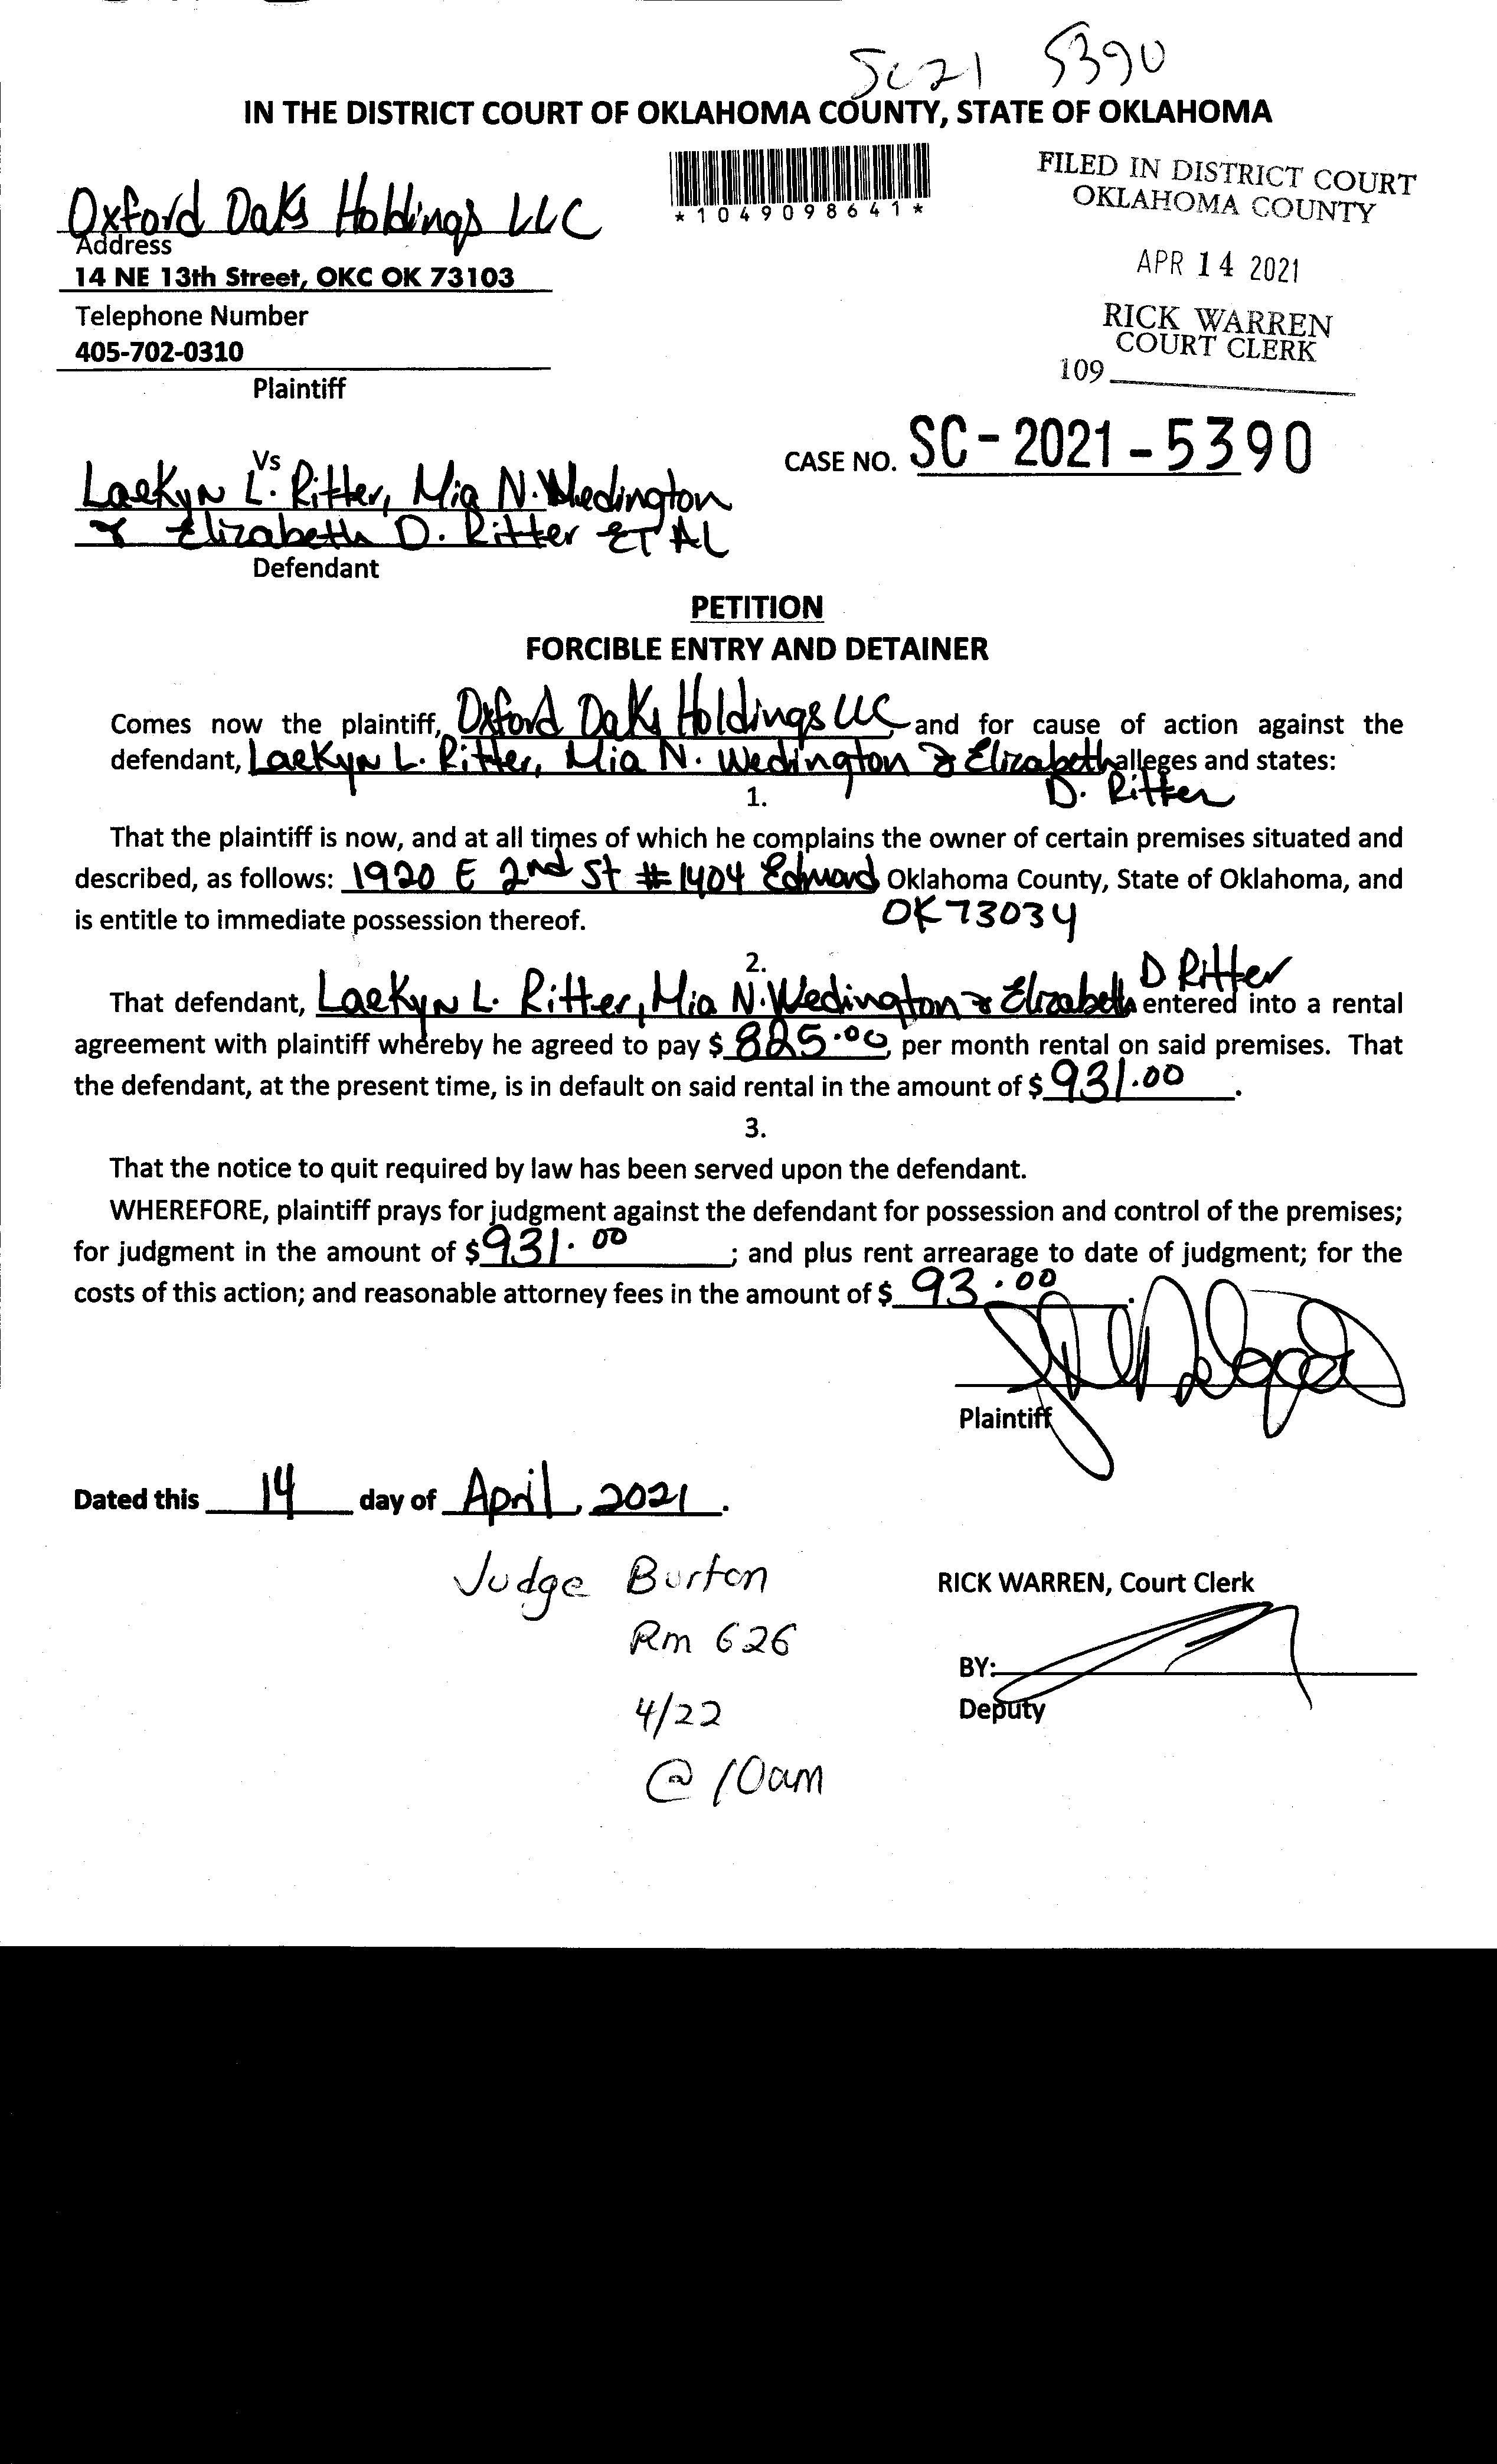 SC21 5390
IN THE DISTRICT COURT OF OKLAHOMA COUNTY, STATE OF OKLAHOMA
*1049098641*
FILED IN DISTRICT COURT
OKLAHOMA COUNTY
APR 14 2021
RICK WARREN
COURT CLERK
109
Oxford Oaks Holdings LLC
Address
14 NE 13th Street, OKC OK 73103
Telephone Number
405-702-0310
Plaintiff
Vs
CASE NO. SC-2021-5390
Laekyn L. Ritter, Mia N. Wedington
& Elizabeth D. Ritter ET AL
Defendant
PETITION
FORCIBLE ENTRY AND DETAINER
Comes now the plaintiff, Oxford Oaks Holdings LLC, and for cause of action against the
defendant, Laekyn L. Ritter, Mia N. Wedington & Elizabeth alleges and states:
D. Ritter
1.
That the plaintiff is now, and at all times of which he complains the owner of certain premises situated and
described, as follows: 1920 E 2nd St #1404 Edmond Oklahoma County, State of Oklahoma, and
is entitle to immediate possession thereof. OK 73034
2.
D Ritter
That defendant, Laekyn L. Ritter, Mia N. Wedington & Elizabeth entered into a rental
agreement with plaintiff whereby he agreed to pay $ 825.00, per month rental on said premises. That
the defendant, at the present time, is in default on said rental in the amount of $ 931.00.
3.
That the notice to quit required by law has been served upon the defendant.
WHEREFORE, plaintiff prays for judgment against the defendant for possession and control of the premises;
for judgment in the amount of $ 931.00; and plus rent arrearage to date of judgment; for the
costs of this action; and reasonable attorney fees in the amount of $ 93.00.
Plaintiff
Dated this 14 day of April, 2021.
Judge Burton
Rm 626
4/22
@ 10am
RICK WARREN, Court Clerk
BY:
Deputy